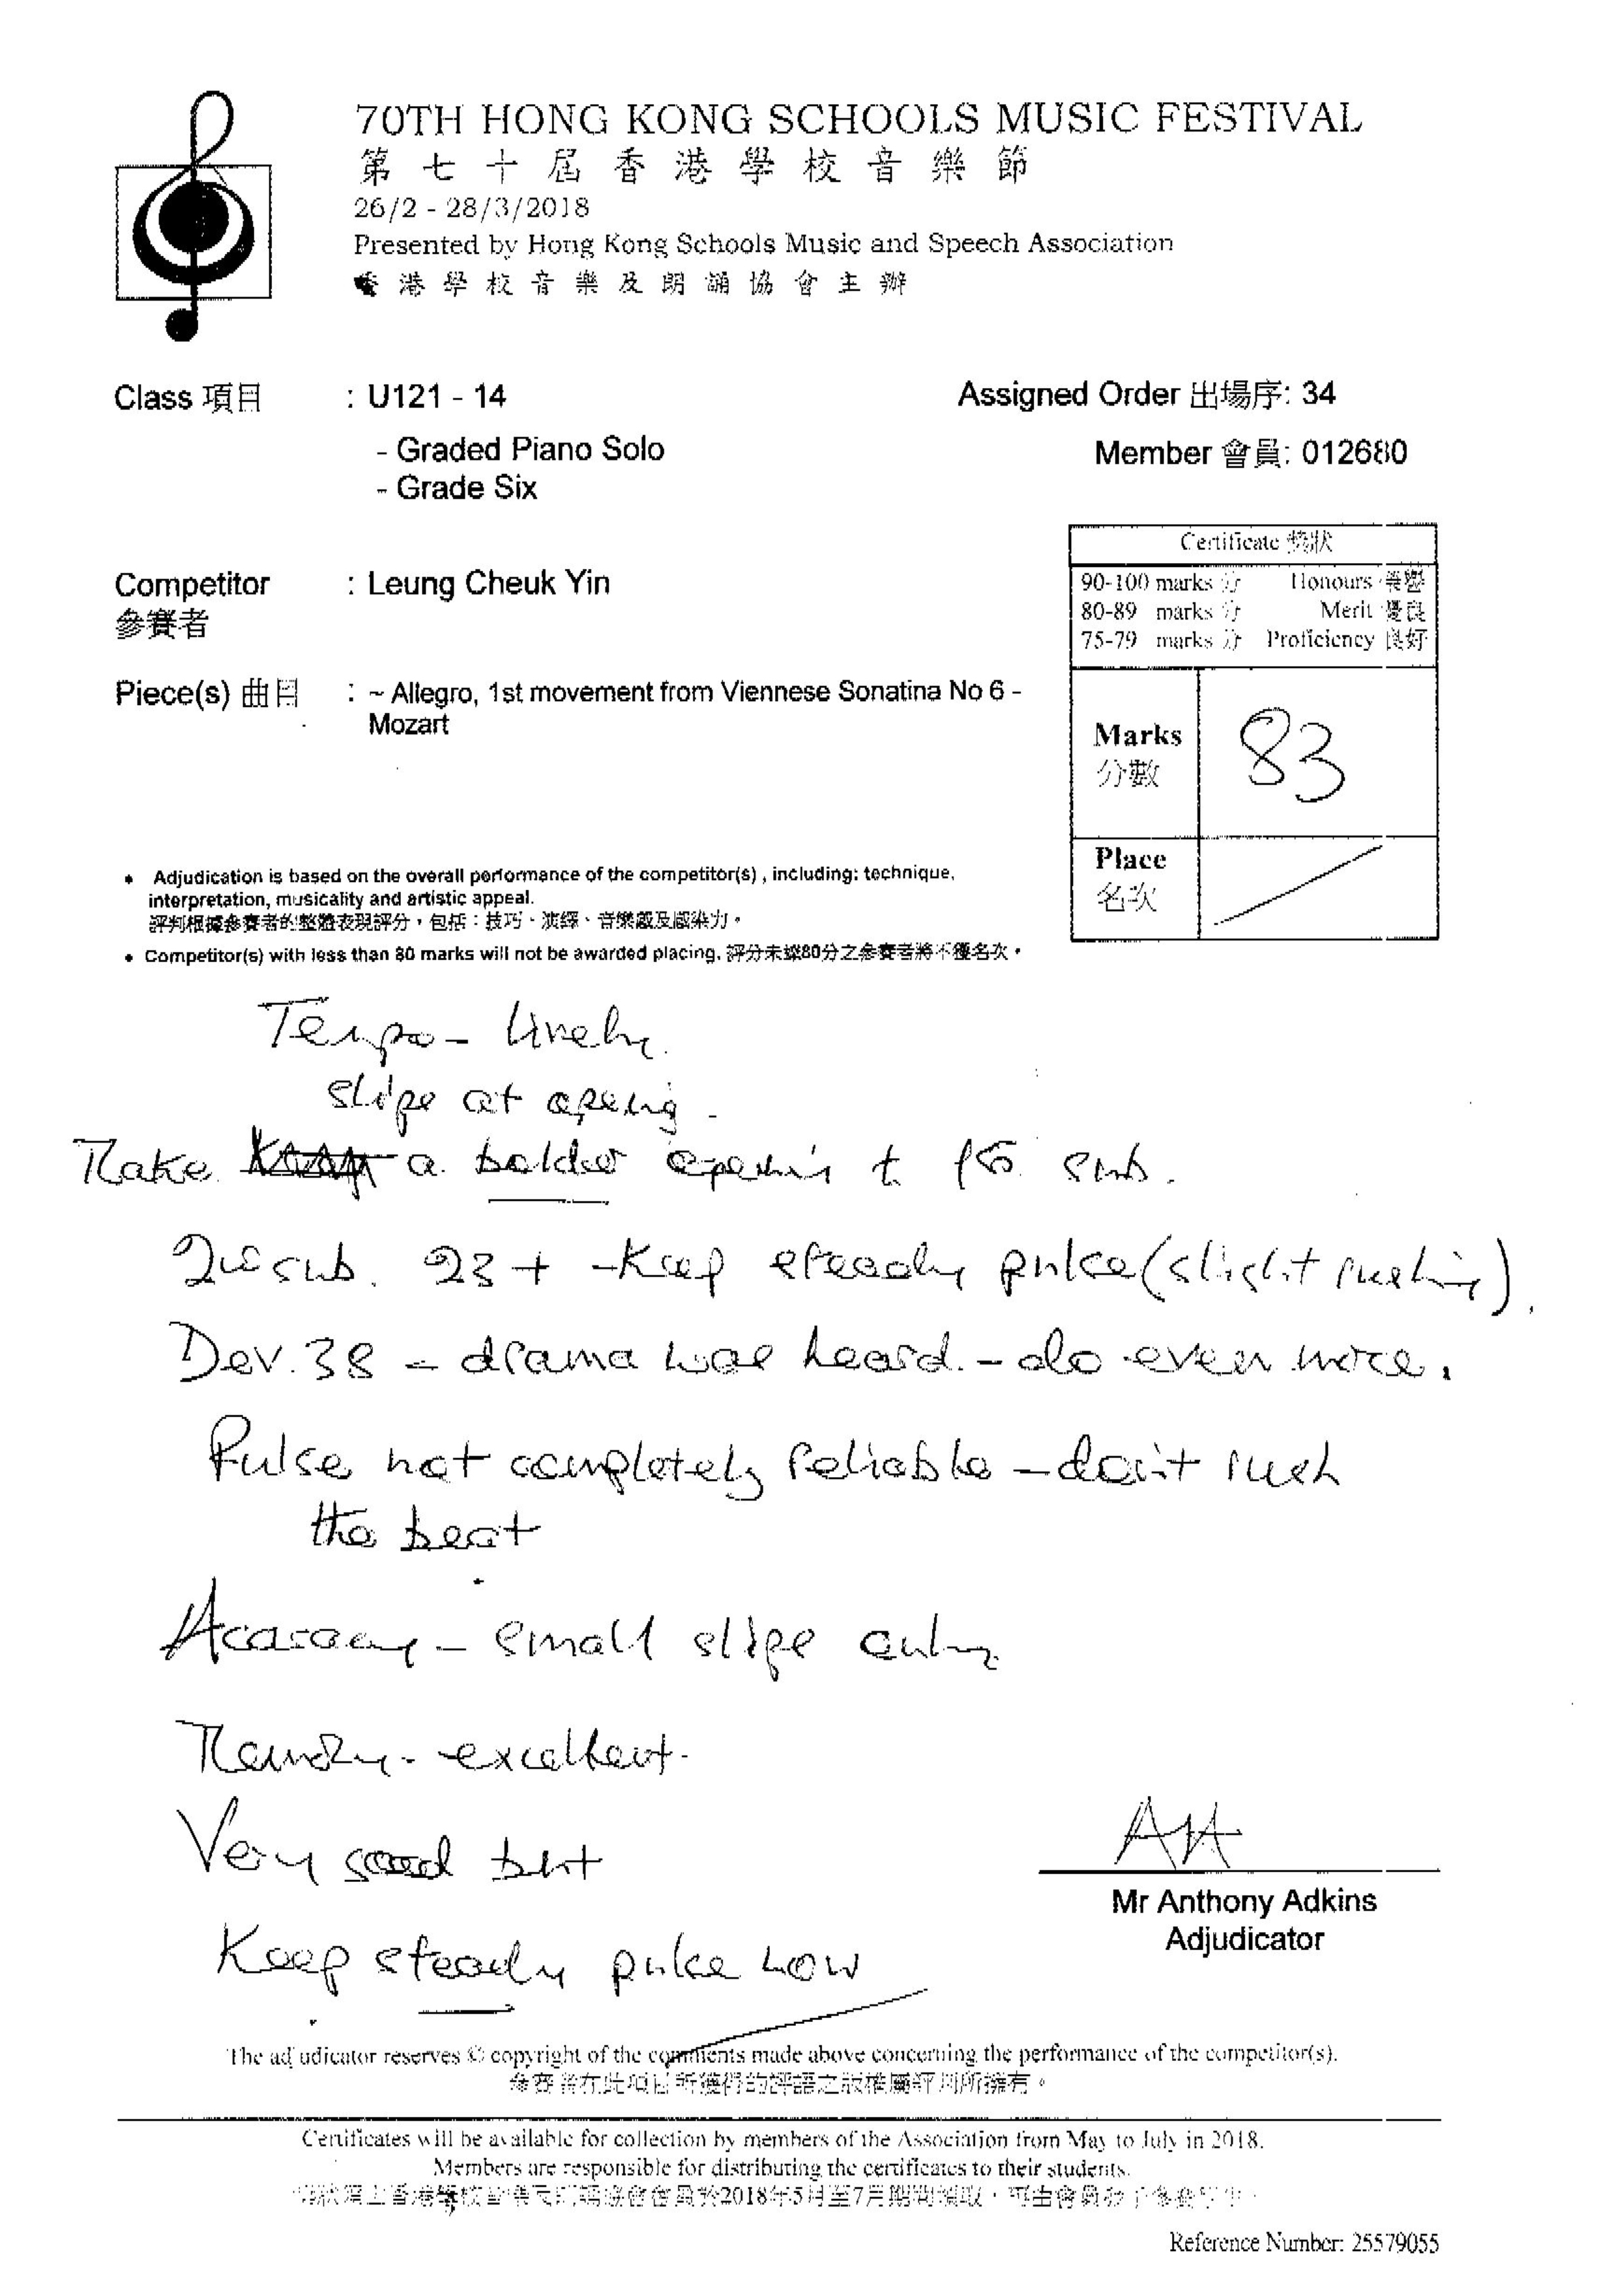 70TH HONG KONG SCHOOLS MUSIC FESTIVAL
第七十屆香港學校音樂節
26/2 - 28/3/2018
Presented by Hong Kong Schools Music and Speech Association
香港學校音樂及朗誦協會主辦
Class 項目 : U121 - 14
Assigned Order 出場序: 34
- Graded Piano Solo
Member 會員: 012680
- Grade Six
Certificate 獎狀
90-100 marks 分 Honours 榮譽
80-89 marks 分 Merit 優良
75-79 marks 分 Proficiency 良好
Competitor : Leung Cheuk Yin
參賽者
Piece(s) 曲目 : ~ Allegro, 1st movement from Viennese Sonatina No 6 -
Mozart
Marks 83
分數
Place
名次
• Adjudication is based on the overall performance of the competitor(s) , including: technique,
interpretation, musicality and artistic appeal.
評判根據參賽者的整體表現評分，包括：技巧、演繹、音樂感及感染力。
• Competitor(s) with less than 80 marks will not be awarded placing. 評分未達80分之參賽者將不獲名次。
Tempo - lively.
slips at opening -
Make a bolder opening to 1st sub.
2nd sub. 23 + - Keep steady pulse (slight rushing).
Dev. 38 - drama was heard. - do even more.
Pulse not completely reliable - don't rush
the beat
Accuracy - small slips only
Memory - excellent.
Very good but
Keep steady pulse now
Mr Anthony Adkins
Adjudicator
The adjudicator reserves © copyright of the comments made above concerning the performance of the competitor(s).
參賽者在此項目所獲得的評語之版權屬評判所擁有。
Certificates will be available for collection by members of the Association from May to July in 2018.
Members are responsible for distributing the certificates to their students.
香港學校音樂及朗誦協會會員於2018年5月至7月期間領取，
Reference Number: 25579055